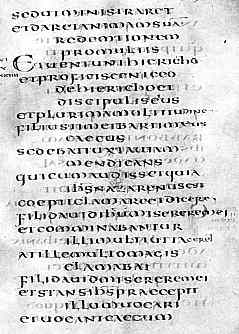 SEDUTMINISTRARET
ETDARETANIMAMSUA
REDEMTIONEM
PROMULTIS
ETVENIUNTINHIERICHO
ETPROFICISCENTEEO
DEHIERICHOET
DISCIPULISEIUS
ETPLURIMAMULTITUDINE
FILIUSTIMEIBARTIMAEUS
CAECUS
SEDEBATIUXTAUIAM
MENDICANS
QUICUMAUDISSETQUIA
IHSNAZARENUSEST
COEPITCLAMARETDICERE
FILIDAUIDIHUMISEREREMEI
ETCOMMINABANTUR
ILLIMULTIUT
ATILLEMULTOMAGIS
CLAMABAT
FILIDAUIDMISEREREMEI
ETSTANSIHSPRAECEPIT
ILLUMUOCARI
ETUOCANTCAECUM